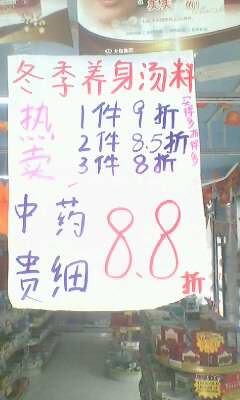 冬季养身汤料
热卖
1件9折
2件8.5折
3件8折
买得多折得多
中药
贵细
8.8折